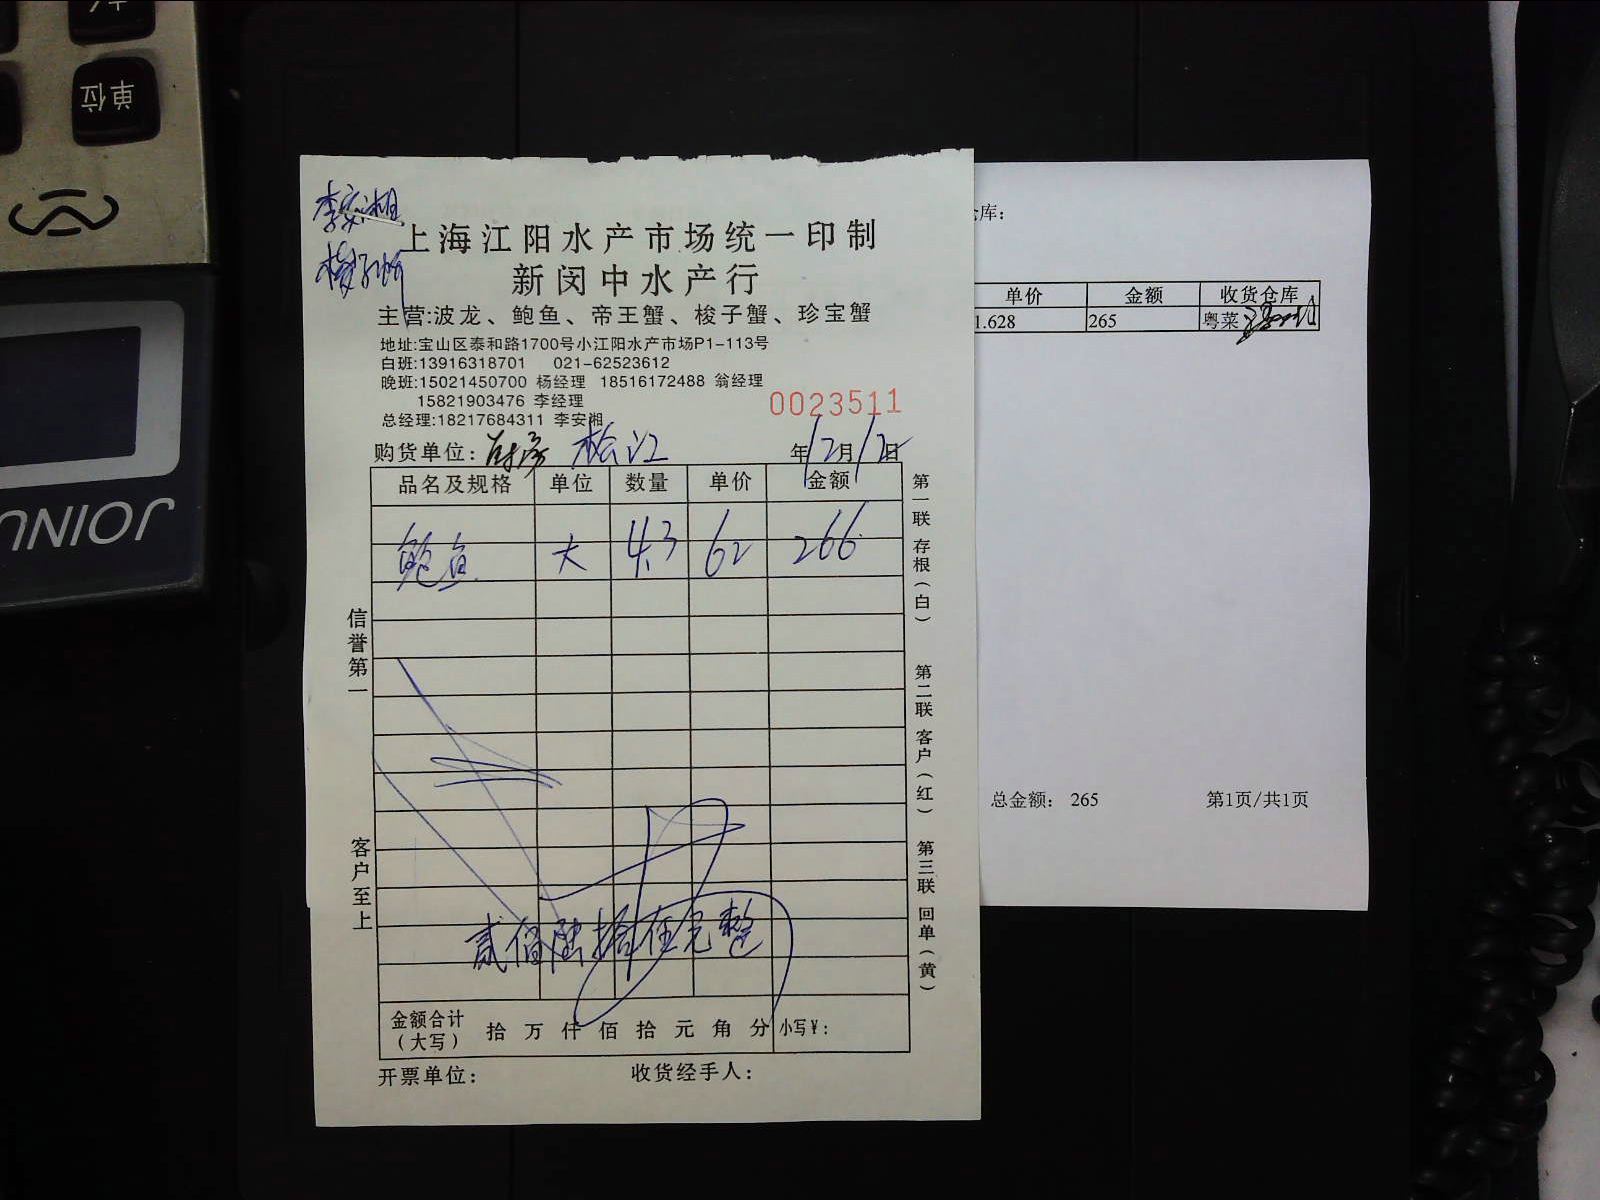 单位
JOINU
李安湘
上海江阳水产市场统一印制
新闵中水产行
主营:波龙、鲍鱼、帝王蟹、梭子蟹、珍宝蟹
地址:宝山区泰和路1700号小江阳水产市场P1-113号
白班:13916318701 021-62523612
晚班:15021450700 杨经理 18516172488 翁经理
15821903476 李经理
总经理:18217684311 李安湘
0023511
购货单位: 松江 年12月12日
品名及规格 单位 数量 单价 金额
鲍鱼 大 4.3 62 266
贰佰陆拾伍元整
金额合计
(大写)
拾 万 仟 佰 拾 元 角 分 小写¥:
开票单位: 收货经手人:
信誉第一
客户至上
第一联 存根(白)
第二联 客户(红)
第三联 回单(黄)
库:
单价 金额 收货仓库
1.628 265 粤菜
总金额: 265 第1页/共1页